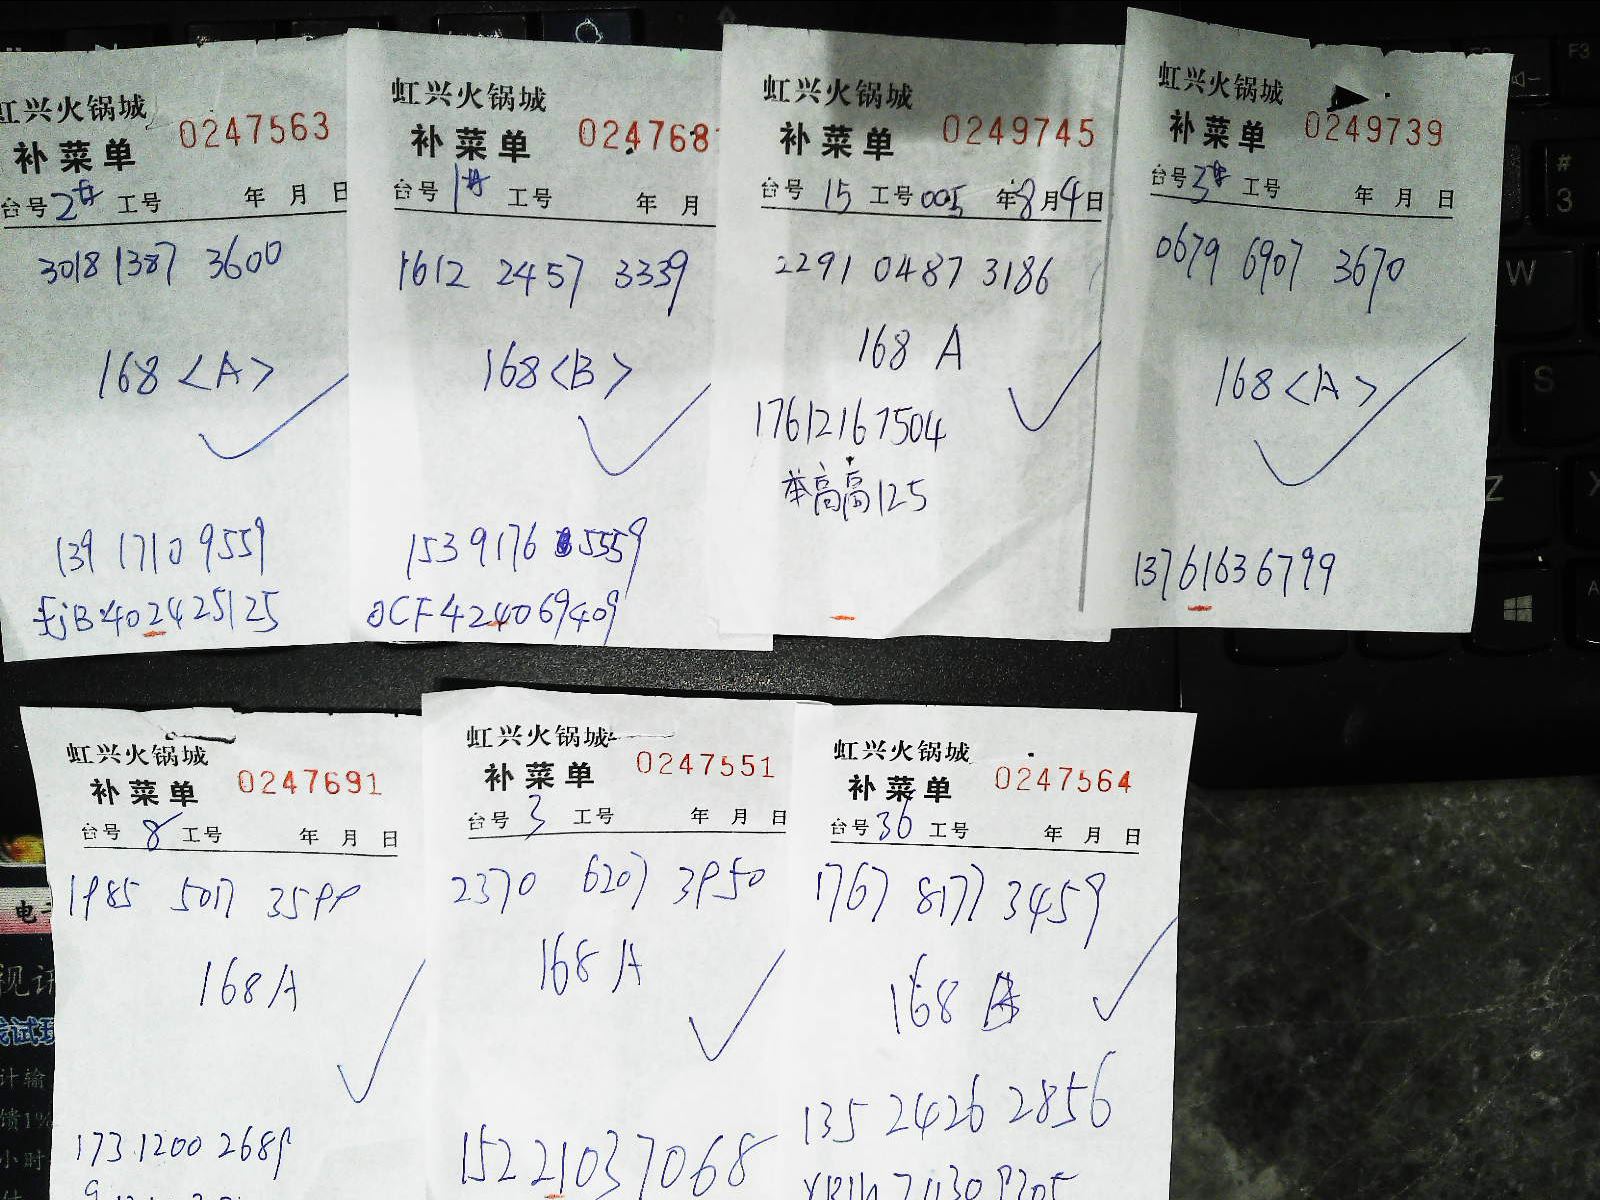 虹兴火锅城
补菜单 0247563
台号 2# 工号 年 月 日
3018 1387 3600
168 <A>
139 1710 9559
402425125
虹兴火锅城
补菜单 024768
台号 1# 工号 年 月
1612 2457 3339
168 <B>
1539176 5559
CF424069409
虹兴火锅城
补菜单 0249745
台号 15 工号 005 年 8 月 4 日
2291 0487 3186
168 A
17612167504
高高125
虹兴火锅城
补菜单 0249739
台号 3# 工号 年 月 日
0679 6907 3670
168 <A>
13761636799
虹兴火锅城
补菜单 0247691
台号 8 工号 年 月 日
1985 5017 3599
168A
173 1200 2689
虹兴火锅城
补菜单 0247551
台号 3 工号 年 月 日
2370 6207 3950
168 A
15221037068
虹兴火锅城
补菜单 0247564
台号 36 工号 年 月 日
1767 8177 3459
168
135 2426 2856